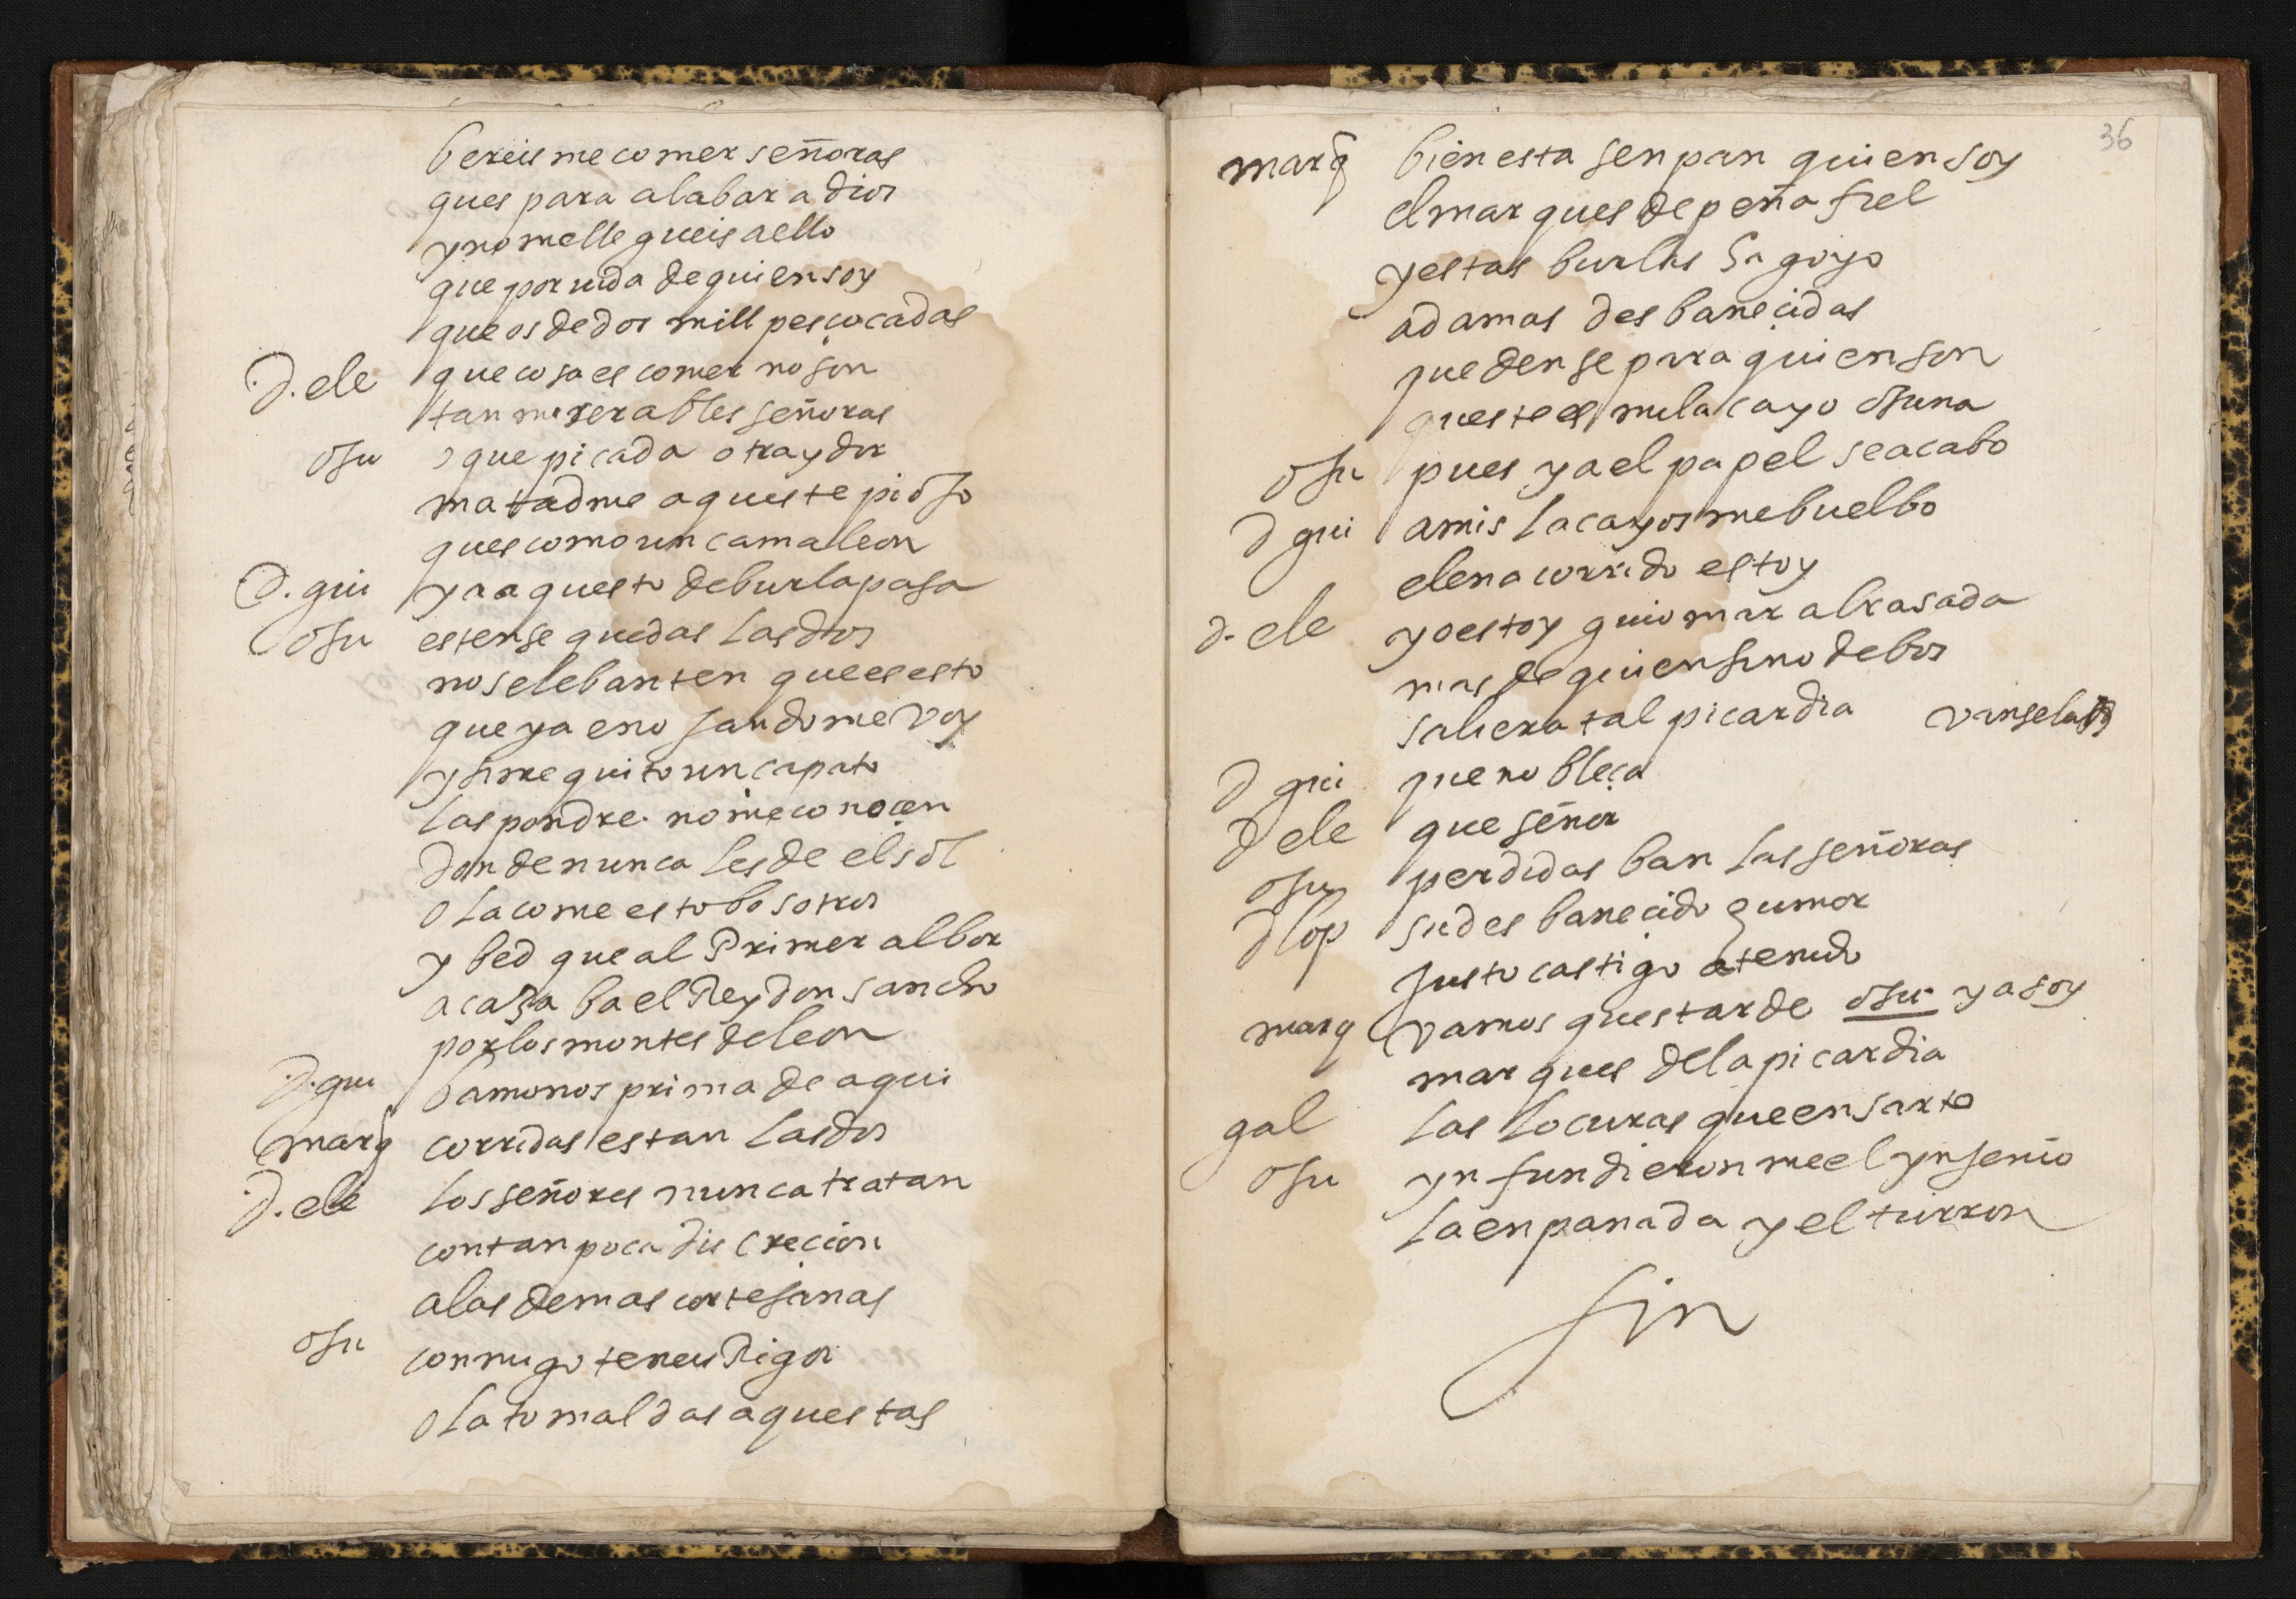 bereis me comer señoras
ques para alabar a dios
y no melle gueis a ello
que por uida de quien soy
que os de dos mill pescoçadas
D. ele que cosa es comer no son
tan miserables señoras
osu o que picada otra y dos
matadme aqueste piojo
ques como un camaleon
D. gui ya aquesto de burla pasa
osu estense quedas las dos
no se lebanten que es esto
que ya enojandome voy
y si me quito un çapato
las pondre. no me conoçen
donde nunca les de el sol
ola come esto bosotros
y bed que al Primer albor
a caza ba el Rey don sancho
por los montes de leon
D. gui bamonos prima de aqui
marq corridas estan las dos
D. ele los señores nunca tratan
con tan poca discreçion
a las demas cortesanas
osu conmigo teneis Rigor
ola tomaldas aquestas
36
marq bien esta sepan quien soy
el marques de peña fiel
y estas burlas hago yo
a damas desbaneçidas
queden se para quien son
queste es mi lacayo osuna
osu pues ya el papel se acabo
D gui a mis lacayos me buelbo
elena corrido estoy
D. ele yo estoy guiomar abrasada
mas de quien sino de bos
saliera tal picardia vanse las 2
D gui que nobleça
D ele que señor
osu perdidas ban las señoras
D lop su desbaneçido humor
justo castigo a tenido
marq vamos ques tarde osu. ya soy
marques de la picardia
gal las locuras que ensarto
osu ynfundieronme el ynjenio
la enpanada y el turron
fin